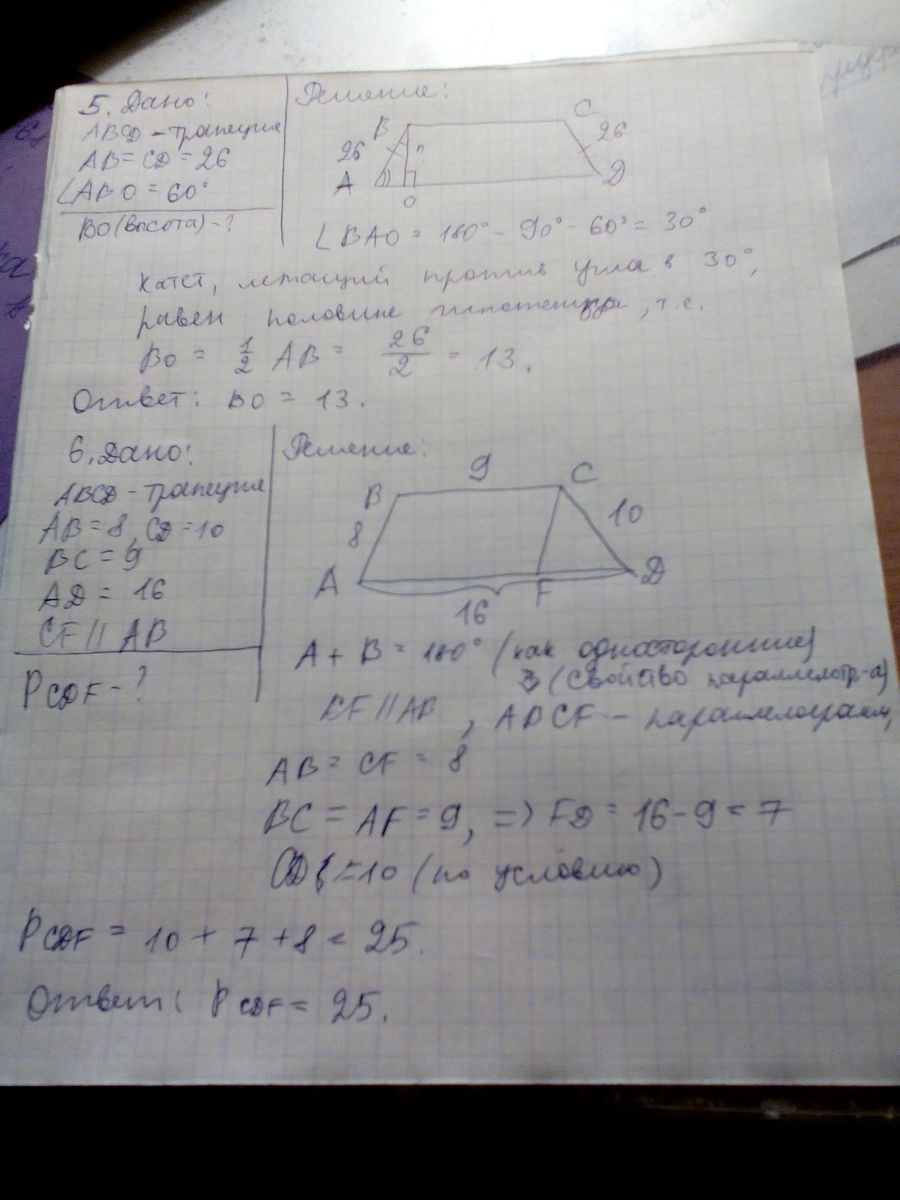 5. Дано:
ABCD - трапеция
AB = CD = 26
∠ABO = 60°
BO (высота) - ?
Решение:
B
C
26
26
A
O
D
∠BAO = 180° - 90° - 60° = 30°
Катет, лежащий против угла в 30°,
равен половине гипотенузы, т.е.
BO = 1/2 AB = 26/2 = 13.
Ответ: BO = 13.
6. Дано:
ABCD - трапеция
AB = 8, CD = 10
BC = 9
AD = 16
CF || AB
PCDF - ?
Решение:
9
B
C
8
10
A
F
D
16
A + B = 180° (как односторонние)
(свойство параллелогр-а)
CF || AB, ABCF - параллелограмм,
AB = CF = 8
BC = AF = 9, => FD = 16 - 9 = 7
CD = 10 (по условию)
PCDF = 10 + 7 + 8 = 25.
Ответ: PCDF = 25.